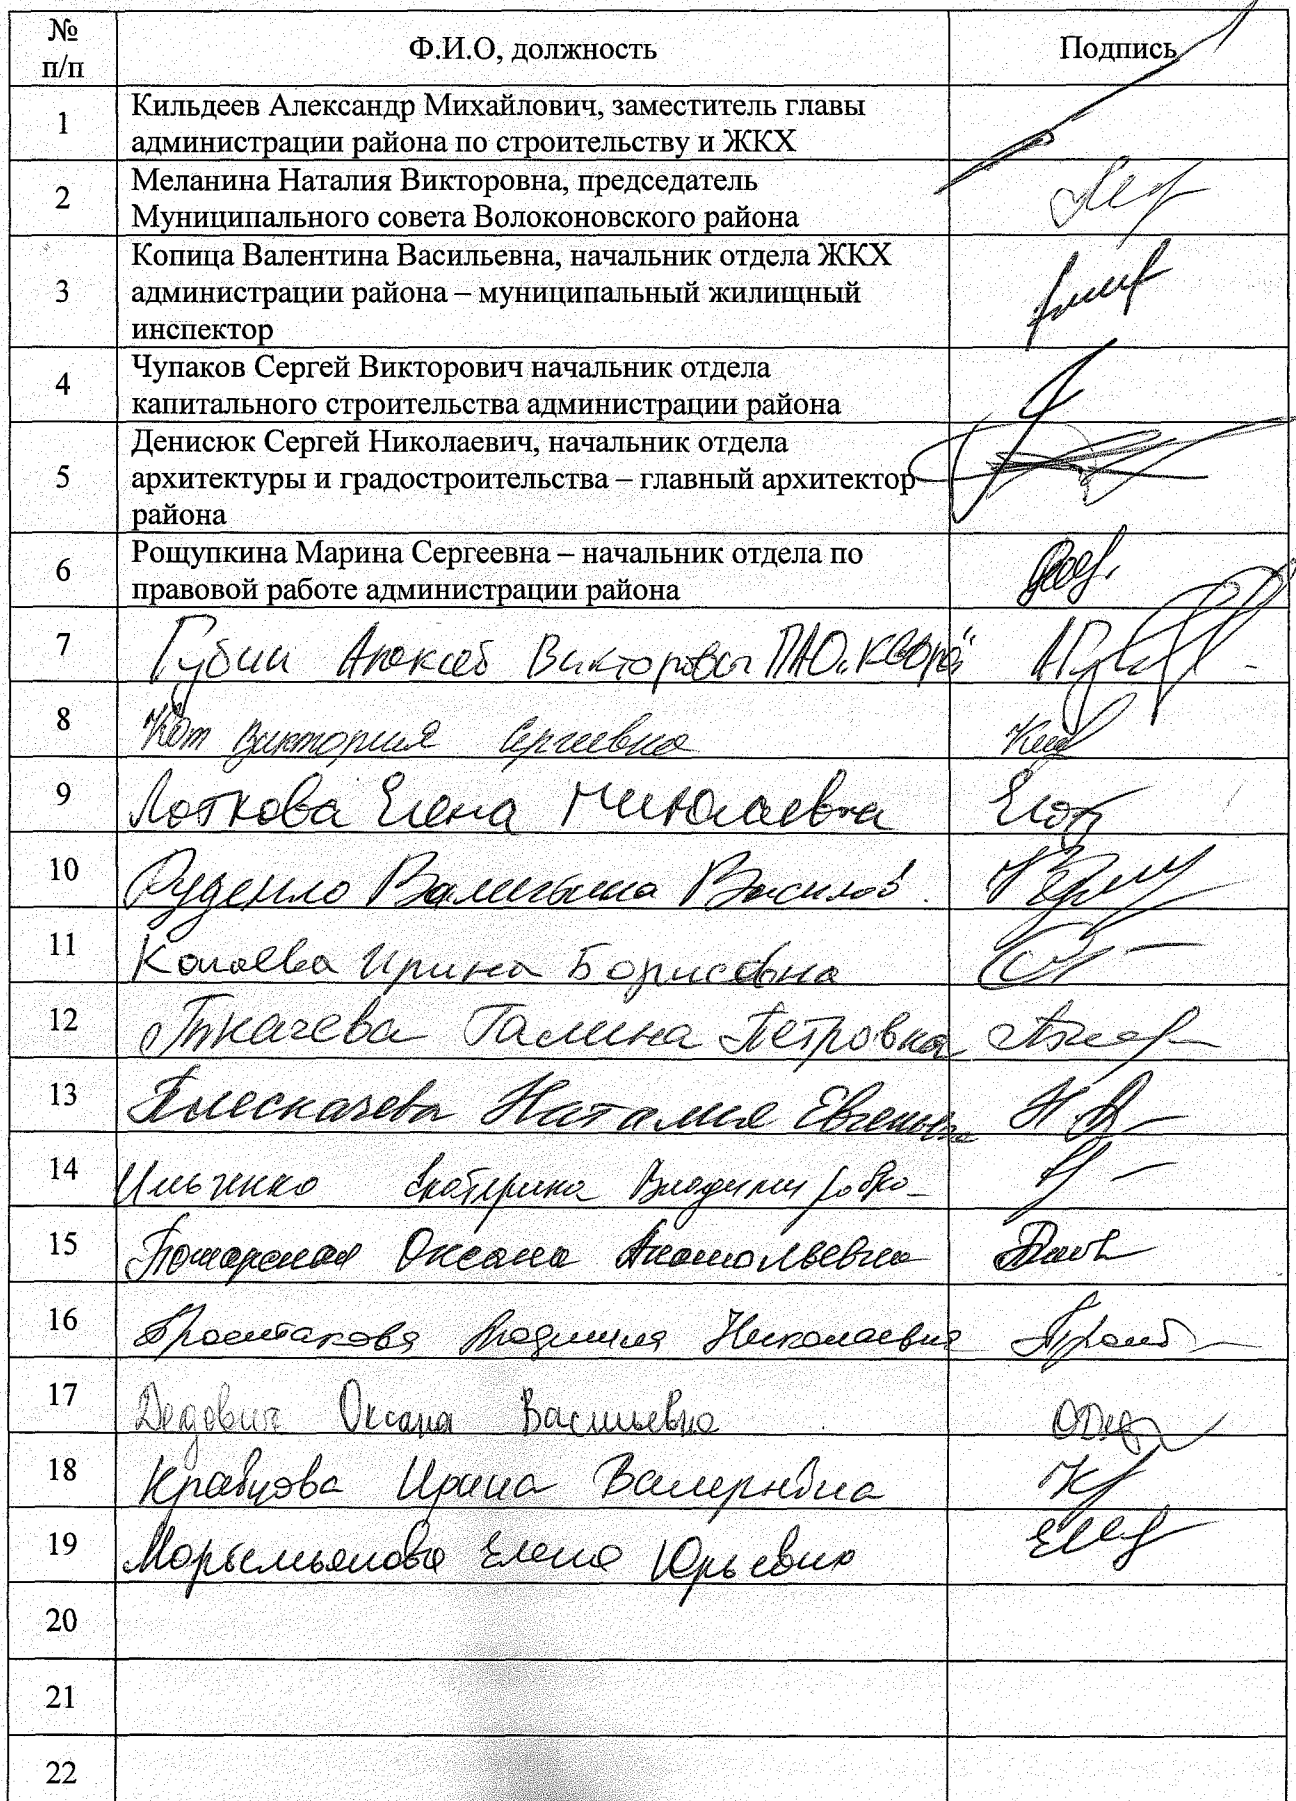 №
п/п
Ф.И.О, должность
Подпись
1
Кильдеев Александр Михайлович, заместитель главы
администрации района по строительству и ЖКХ
2
Меланина Наталия Викторовна, председатель
Муниципального совета Волоконовского района
3
Копица Валентина Васильевна, начальник отдела ЖКХ
администрации района – муниципальный жилищный
инспектор
4
Чупаков Сергей Викторович начальник отдела
капитального строительства администрации района
5
Денисюк Сергей Николаевич, начальник отдела
архитектуры и градостроительства – главный архитектор
района
6
Рощупкина Марина Сергеевна – начальник отдела по
правовой работе администрации района
7
Губин ПАО
8
Кот Виктория Сергеевна
9
Лоткова Елена Николаевна
10
Руденко Валентина Василов.
11
Ирина Борисовна
12
Ткачева Галина Петровна
13
Плескачева Наталия Евгеньевна
14
Ильченко Екатерина Владимировна
15
Оксана Анатольевна
16
Простакова Людмила Николаевна
17
Дедович Оксана Васильевна
18
Кравцова Ирина Валерьевна
19
Елена Юрьевна
20
21
22